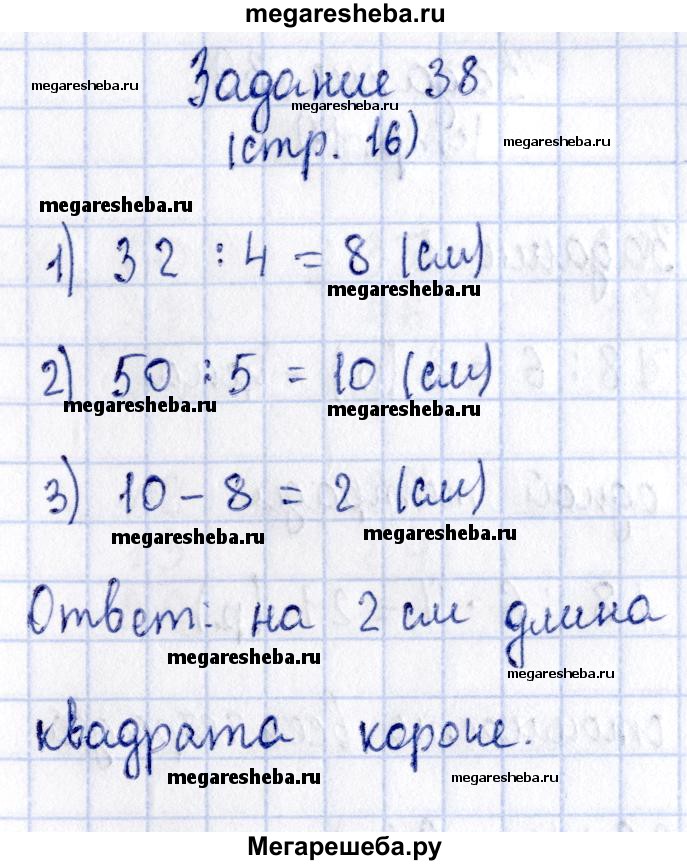 megaresheba.ru
Задание 38
megaresheba.ru
megaresheba.ru
(стр. 16)
megaresheba.ru
megaresheba.ru
1) 32 : 4 = 8 (см)
megaresheba.ru
2) 50 : 5 = 10 (см)
megaresheba.ru megaresheba.ru
3) 10 - 8 = 2 (см)
megaresheba.ru megaresheba.ru
Ответ: на 2 см длина
megaresheba.ru megaresheba.ru
квадрата короче.
megaresheba.ru megaresheba.ru
Мегарешеба.ру